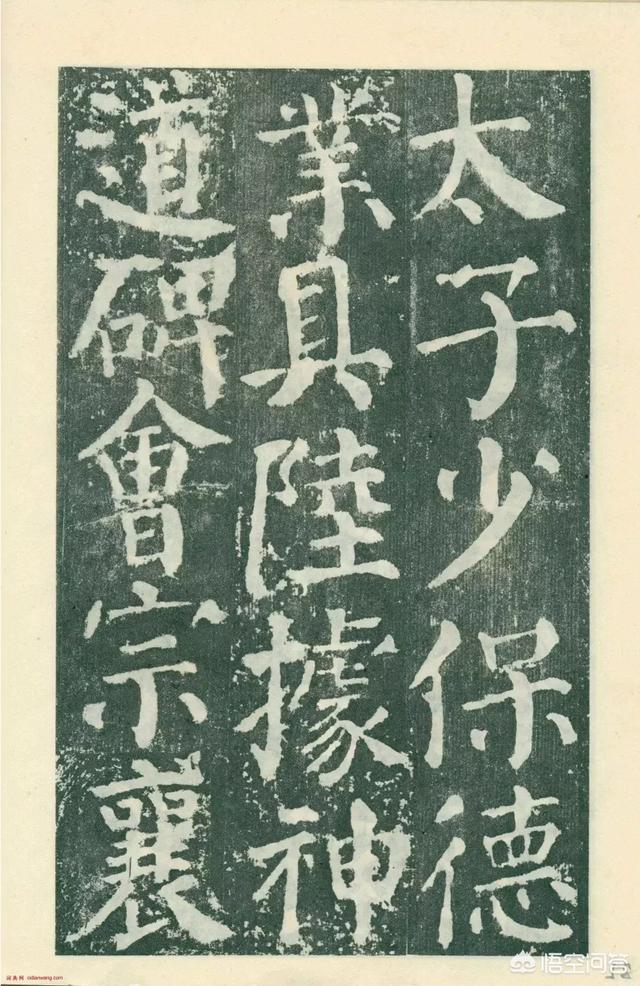 太子少保德
業具陸據神
道碑會宗襄
词典网 cidianwang.com
悟空问答